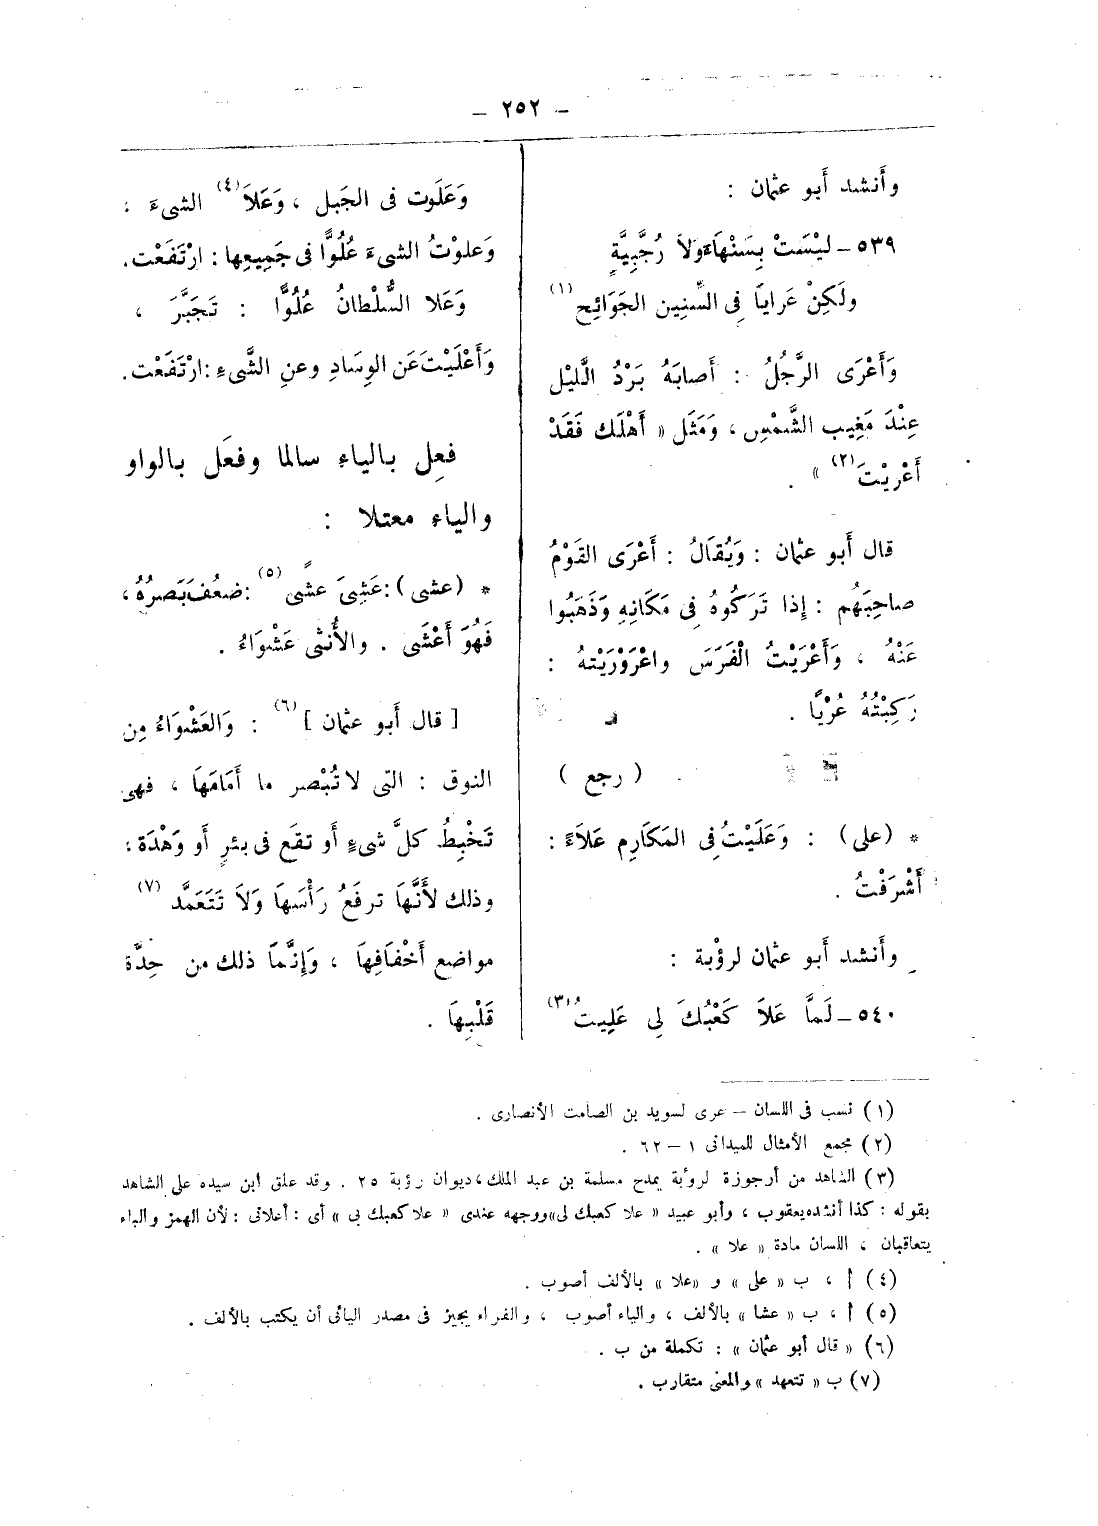 – ٢٥٢ –
وأَنشد أَبو عثمان :
٥٣٩ – ليْسَتْ بِسَنْهَاءَ ولاَ رُجَّبِيَّةٍ
ولَكِنْ عَراياَ فِى السِّنِين الجَوَائِحِ (١)
وَأَعْرَى الرَّجُلُ : أَصابَهُ بَرْدُ الَّليْل
عِنْدَ مَغِيب الشَّمْسِ ، وَمَثَل « أَهْلَك فَقَدْ
أَعْرِيْتَ (٢) » .
قال أَبو عثمان : وَيُقَالُ : أَعْرَى القَوْمُ
صاحِبَهُم : إِذا تَرَكُوهُ فِى مَكَانِهِ وَذَهَبُوا
عَنْهُ ، وَأَعْرَيْتُ الْفَرَسَ واعْرَوْرَيْتهُ :
رَكِبْتُهُ عُرْيًا .
( رجع )
* (على) : وَعَلَيْتُ فِى المَكَارِمِ عَلاَءً :
أَشْرَفْتُ .
وأَنشد أَبو عثمان لرؤْبة :
٥٤٠ – لَمَّا عَلاَ كَعْبُكَ لِى عَلِيتُ (٣)
وَعَلَوت فى الجَبل ، وَعَلاَ (٤) الشىءَ :
وَعلوْتُ الشىءَ عُلُوًّا فى جَمِيعِها : ارْتَفَعْت .
وَعَلا السُّلْطانُ عُلُوًّا : تَجَبَّرَ ،
وَأَعْلَيْتَ عَن الوِسَادِ وعنِ الشَّىءِ : ارْتَفَعْت .
فعِل بالياءِ سالما وفعَل بالواو
والياءِ معتلا :
* (عشى) : عَشِىَ عشًى (٥) : ضعُفَ بَصرُهُ ،
فَهُوَ أَعْشَى . والأُنثى عَشْوَاءُ .
[ قال أَبو عثمان ] (٦) : وَالعَشْوَاءُ مِن
النوق : التى لا تُبْصر ما أَمَامَهَا ، فهى
تَخْبِطُ كلَّ شىءٍ أَو تقَع فى بئرٍ أَو وَهْدَة ؛
وذلك لأَنَّهَا ترفَعُ رَأْسَهَا وَلاَ تَتَعَمَّد (٧)
مواضع أَخْفَافِهَا ، وَإِنَّمَا ذلك من حِدَّة
قَلْبِهَا .
(١) نسب فى اللسان – عرى لسويد بن الصامت الأنصارى .
(٢) مجمع الأمثال للميدانى ١ – ٦٢ .
(٣) الشاهد من أرجوزة لرؤبة يمدح مسلمة بن عبد الملك ، ديوان رؤبة ٢٥ . وقد علق ابن سيده على الشاهد
بقوله : كذا أنشده يعقوب ، وأبو عبيد « علا كعبك لى » ووجهه عندى « علا كعبك بى » أى : أعلانى : لأن الهمز والباء
يتعاقبان ، اللسان مادة « علا » .
(٤) أ ، ب « على » و « علا » بالألف أصوب .
(٥) أ ، ب « عشا » بالألف ، والياء أصوب ، والفراء يجيز فى مصدر اليائى أن يكتب بالألف .
(٦) « قال أبو عثمان » : تكملة من ب .
(٧) ب « تتعهد » والمعنى متقارب .